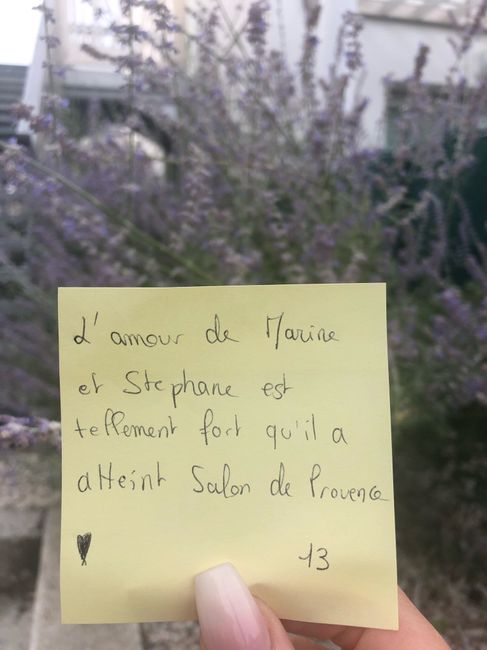 L'amour de Marine
et Stephane est
tellement fort qu'il a
atteint Salon de Provence
13